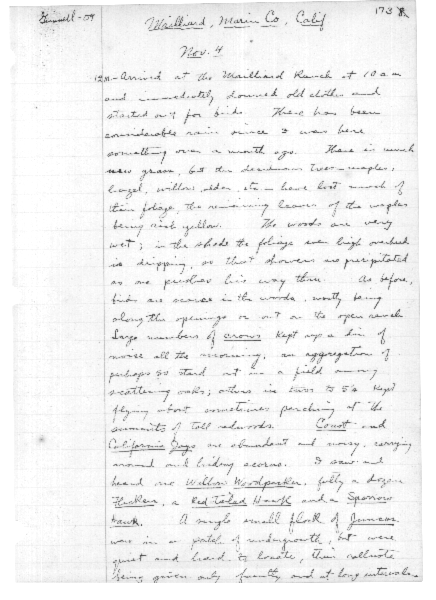 Grinnell - 09
1738
Mailliard, Marin Co., Calif
Nov. 4
12 M - Arrived at the Mailliard Ranch at 10 a.m
and immediately donned old clothes and
started out for birds. There has been
considerable rain since I was here
something over a month ago. There is much
new grass, but the deciduous trees - maples,
hazel, willow, alder, etc - have lost much of
their foliage, the remaining leaves of the maples
being rich yellow. The woods are very
wet; in the shade the foliage even high overhead
is dripping, so that showers are precipitated
as one pushes his way thru. As before,
birds are scarce in the woods, mostly being
along the openings or out on the open ranch.
Large numbers of crows kept up a din of
noise all the morning, an aggregation of
perhaps 50 stand out in a field among
scattering oaks; others in kept
flying about sometimes perching at the
summits of tall redwoods. Coast and
California Jays are abundant and noisy, carrying
around and hiding acorns. I saw and
heard one Woodpecker, fully a dozen
Flicker, a Red tailed Hawk and a Sparrow
Hawk. A single small flock of Juncos
were in a patch of undergrowth, but were
quiet and hard to locate, their
being given only faintly and at long intervals.